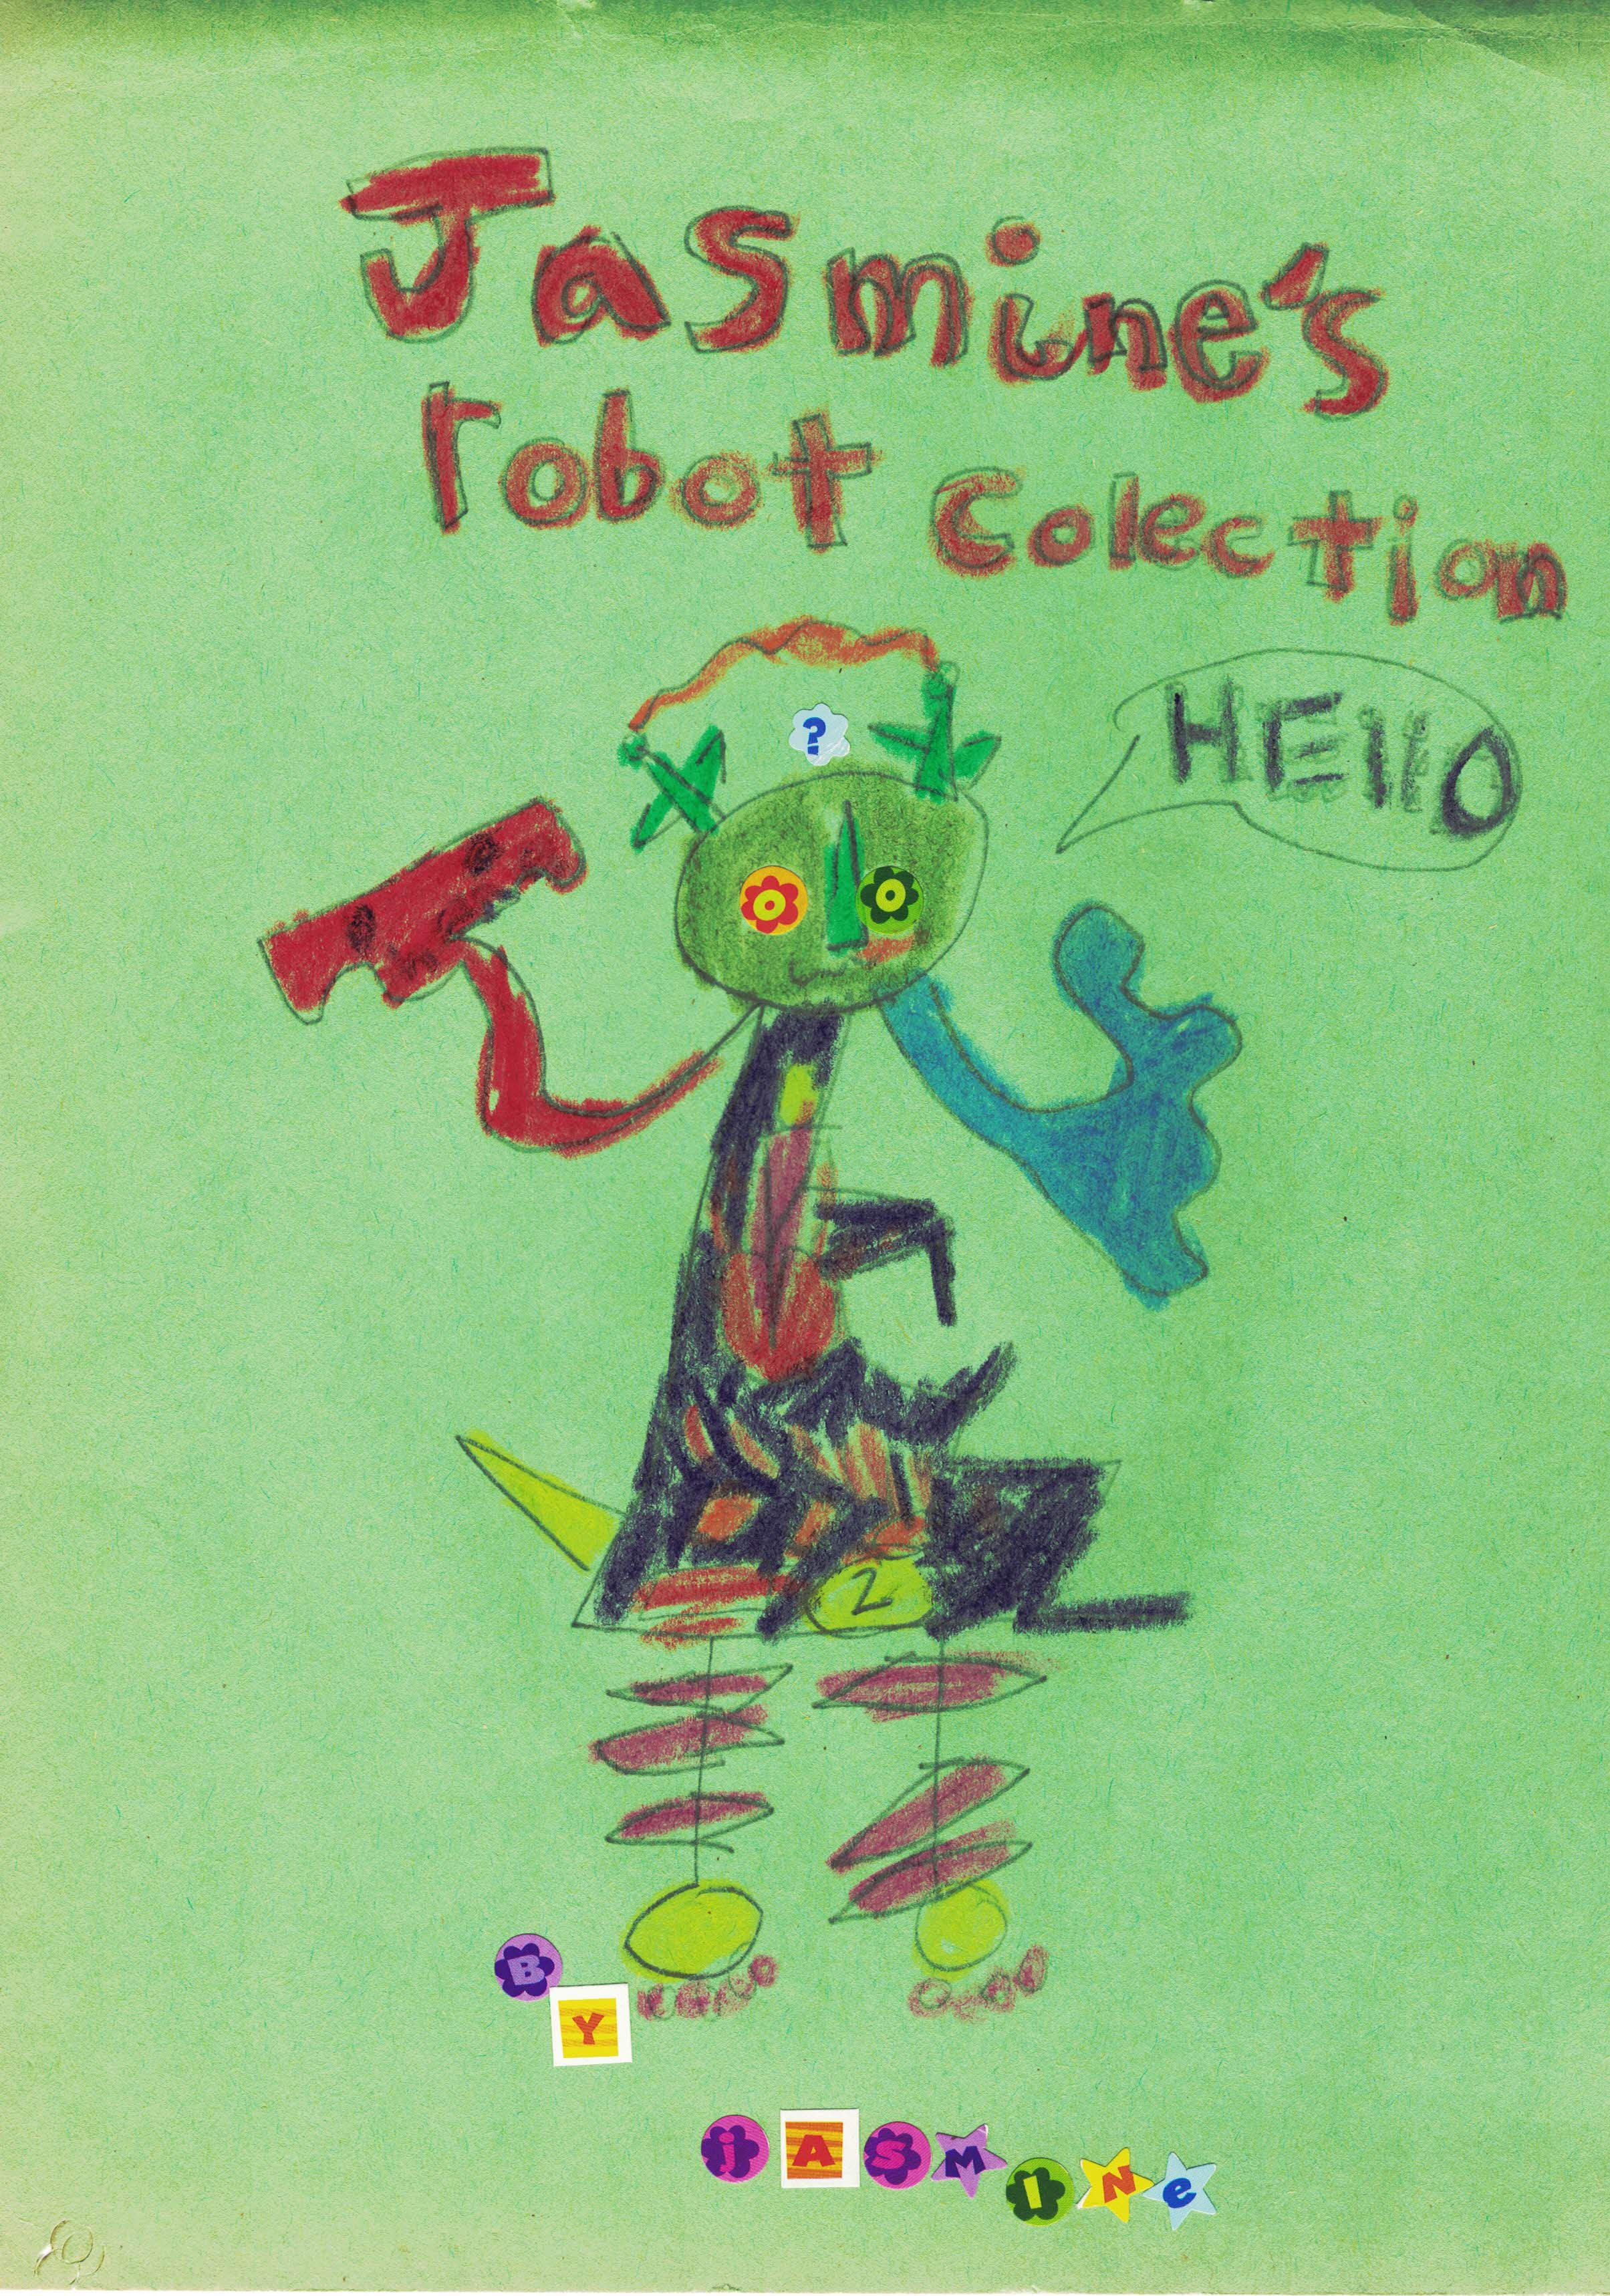 Jasmine's
robot Colection
HEllO
?
2
BY
jASMINe